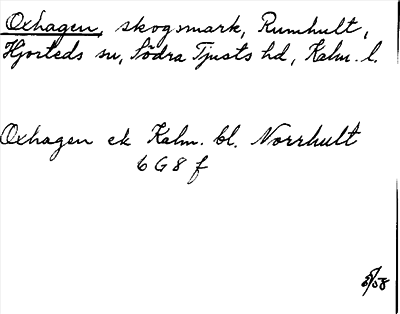 Oxhagen, skogsmark, Rumhult,
Hjorteds sn, Södra Tjusts hd, Kalm. l.
Oxhagen ek Kalm. bl. Norrhult
6 G 8 f